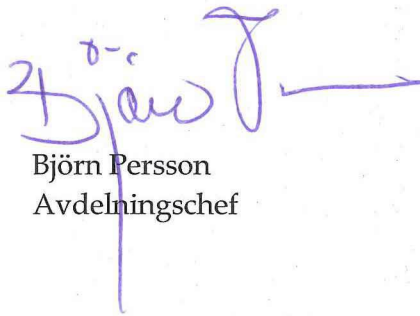 Björn P
Björn Persson
Avdelningschef